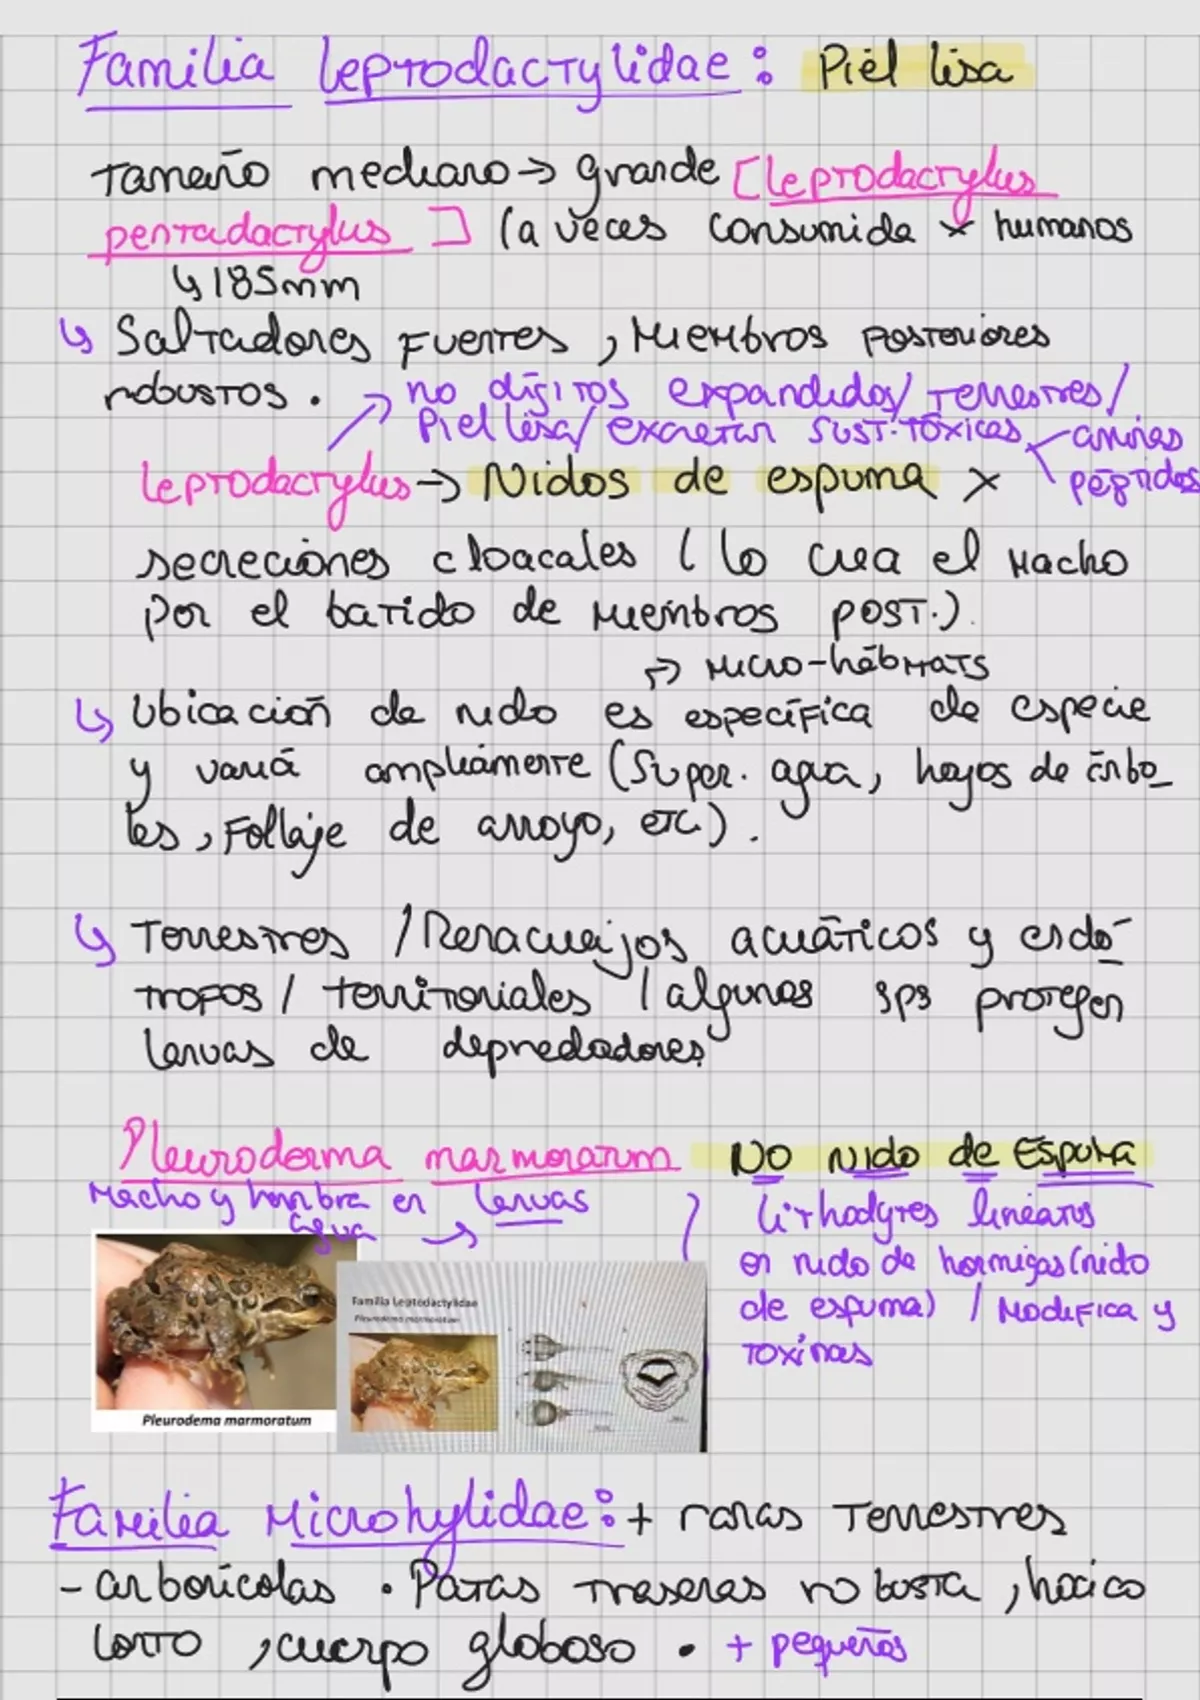 Familia Leptodactylidae: Piel lisa
Tamaño mediano → grande [Leptodactylus
pentadactylus] (a veces consumida x humanos
↳ 185mm
↳ Saltadores fuertes, Miembros posteriores
robustos. → no dígitos expandidos/ Terrestres/
Piel lisa/ excretan sust. tóxicas aminas
péptidos
Leptodactylus → Nidos de espuma x
secreciones cloacales (lo crea el Macho
por el batido de Miembros post.).
→ Micro-hábitats
↳ Ubicación de nido es específica de especie
y varía ampliamente (Super. agua, hoyos de árbo_
les, Follaje de arroyo, etc.).
↳ Terrestres / Renacuajos acuáticos y endó-
tropos / territoriales / algunas sps protegen
larvas de depredadores.
Pleuroderma marmoratum NO Nido de Espuma
Macho y hembra en agua → larvas
Lithodytes lineatus
en nido de hormigas (nido
de espuma) / Modifica y
toxinas
Familia Leptodactylidae
Pleurodema marmoratum
Pleurodema marmoratum
Familia Microhylidae: + ranas Terrestres
- arborícolas . Patas traseras robusta, hocico
corto, cuerpo globoso . + pequeñas